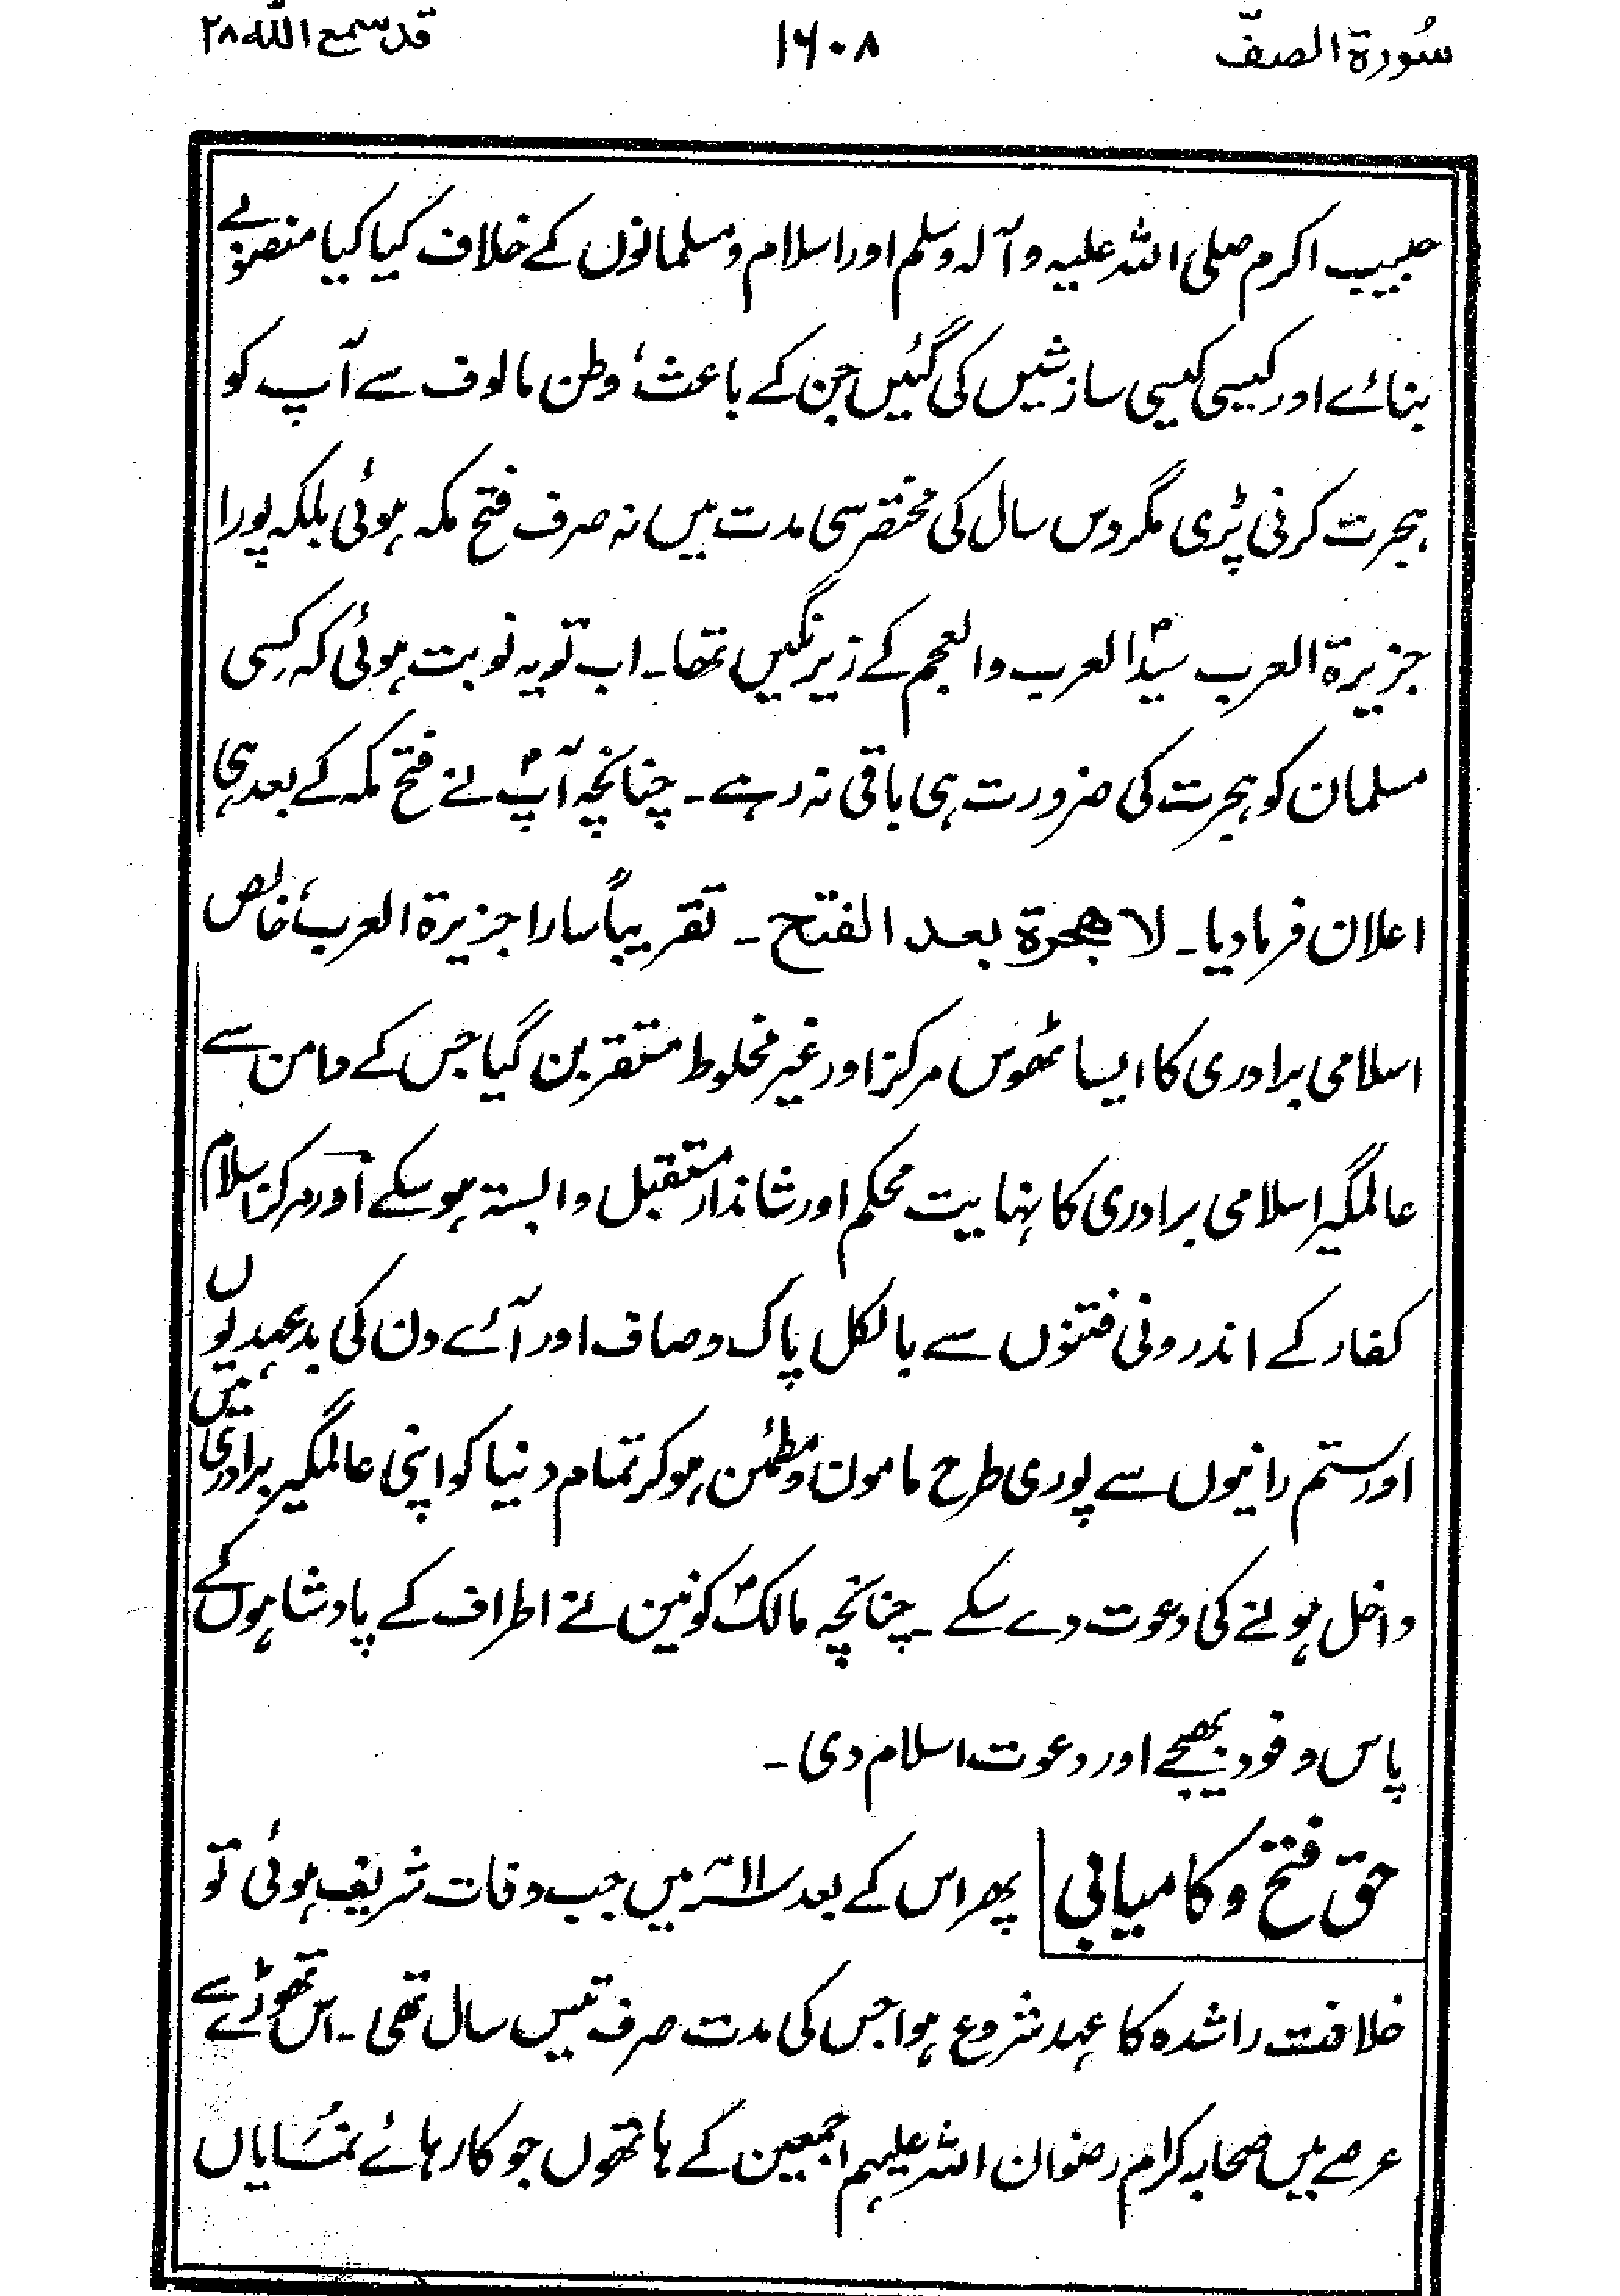 سُورة الصفّ ۱۶۰۸ قد سمع اللّٰه ۲۸
حبیب اکرم صلی اللہ علیہ وآلہ وسلم اور اسلام و مسلمانوں کے خلاف کیا کیا منصوبے
بنائے اور کیسی کیسی سازشیں کی گئیں جن کے باعث، وطن مالوف سے آپ کو
ہجرت کرنی پڑی مگر دس سال کی مختصر سی مدت میں نہ صرف فتح مکہ ہوئی بلکہ پورا
جزیرۃ العرب سیّدؐ العرب والعجم کے زیر نگیں تھا۔ اب تو یہ نوبت ہوئی کہ کِسی
مسلمان کو ہجرت کی ضرورت ہی باقی نہ رہے۔ چنانچہ آپؐ نے فتح مکہ کے بعد ہی
اعلان فرما دیا۔ لا هجرة بعد الفتح۔ تقریباً سارا جزیرۃ العرب، خالص
اسلامی برادری کا ایسا ٹھوس مرکز اور غیر مخلوط مستقر بن گیا جس کے دامن سے
عالمگیر اسلامی برادری کا نہایت محکم اور شاندار مستقبل وابستہ ہو سکے اور مرکز اسلام
کفار کے اندرونی فتنوں سے بالکل پاک و صاف اور آئے دن کی بدعہدیوں
اور ستم رانیوں سے پوری طرح مامون و مطمئن ہو کر تمام دنیا کو اپنی عالمگیر برادری میں
داخل ہونے کی دعوت دے سکے۔ چنانچہ مالکؐ کونین نے اطراف کے پادشاہوں کے
پاس وفود بھیجے اور دعوت اسلام دی۔
حق فتح و کامیابی پھر اس کے بعد سنہ ۱۱ھ میں جب وفات شریف ہوئی تو
خلافت راشدہ کا عہد شروع ہوا جس کی مدت صرف تیس سال تھی۔ اس تھوڑے سے
عرصے میں صحابہ کرام رضوان اللہ علیہم اجمعین کے ہاتھوں جو کارہائے نمُایاں